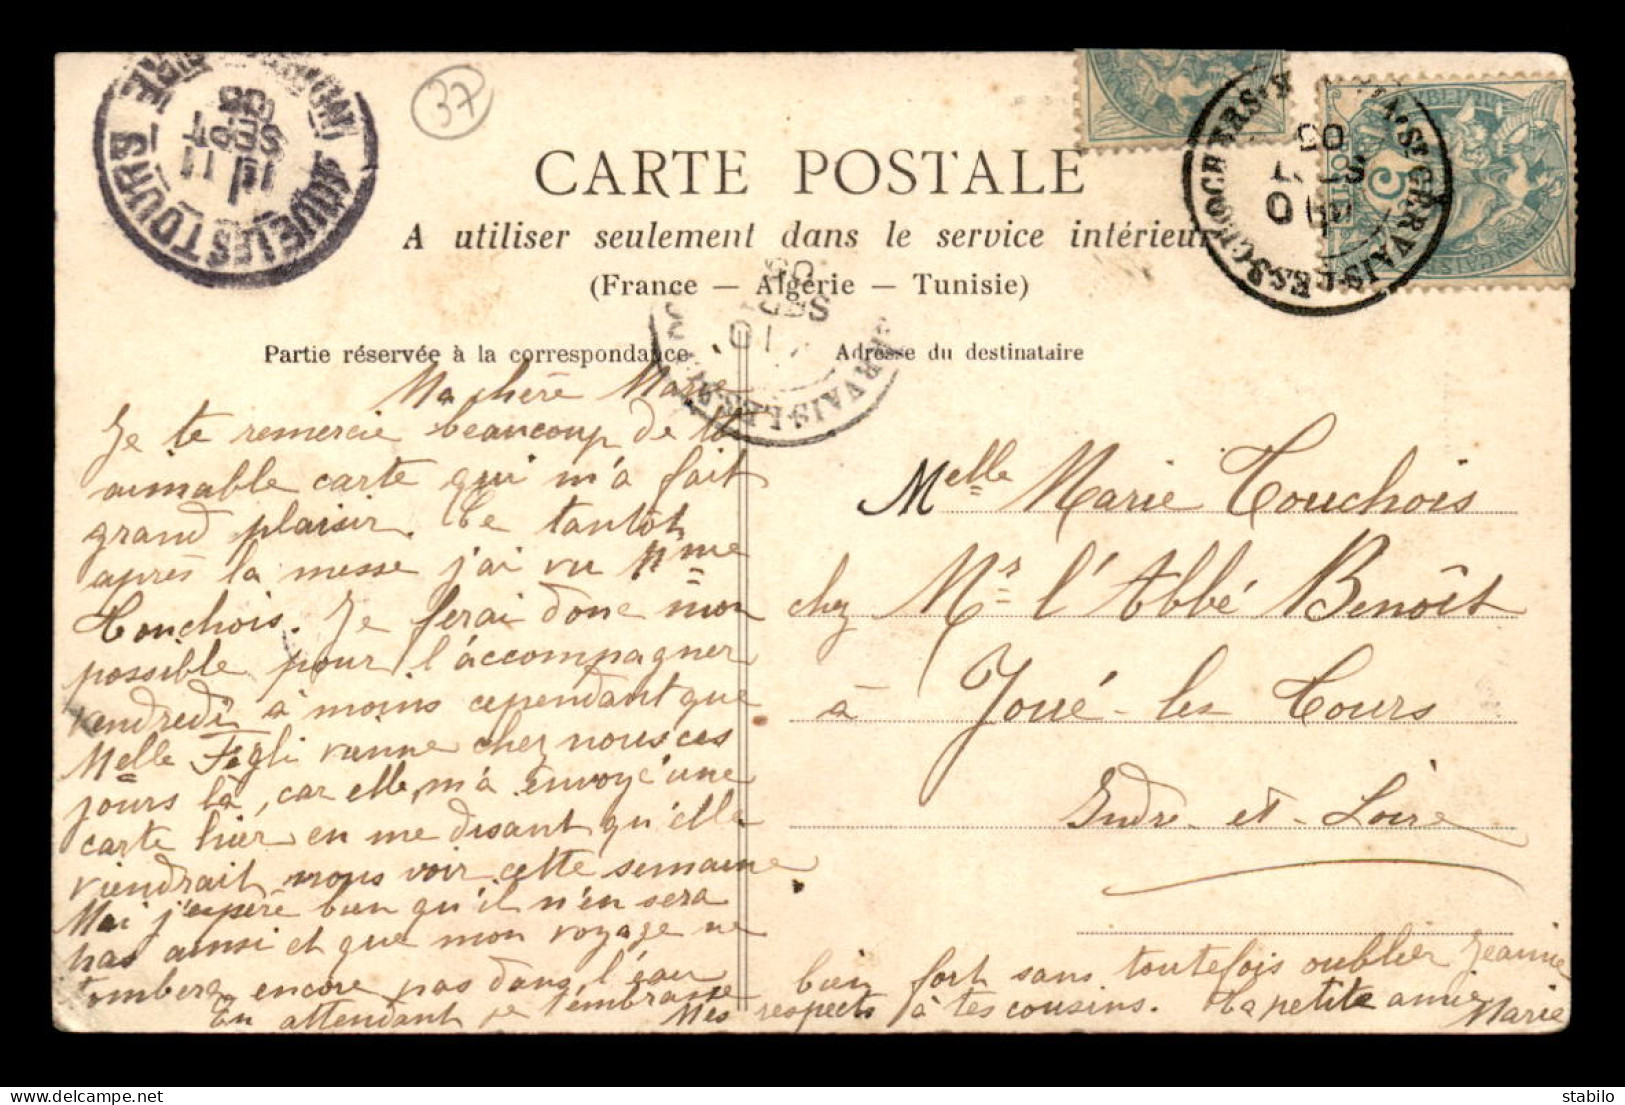 37
CARTE POSTALE
A utiliser seulement dans le service intérieur
(France — Algérie — Tunisie)
Partie réservée à la correspondance
Adresse du destinataire
JOUE LES TOURS
11
SEPT
05
ST GERVAIS-LES-3-CLOCHERS
05
GERVAIS-LES
05
POSTES
5
Ma chère Marie
Je te remercie beaucoup de ta
aimable carte qui m'a fait
grand plaisir. Ce tantôt
après la messe j'ai vu Mme
Touchois. Je ferai donc mon
possible pour l'accompagner
vendredi à moins cependant que
Melle Fégli vienne chez nous ces
jours là, car elle m'a envoyé une
carte hier en me disant qu'elle
viendrait nous voir cette semaine
Moi j'espère bien qu'il n'en sera
pas ainsi et que mon voyage ne
tombera encore pas dans l'eau
En attendant je t'embrasse
bien fort sans toutefois oublier Jeanne
Mes respects à tes cousins. Ta petite amie
Marie
Melle Marie Touchois
chez Mr l'Abbé Benoît
à Joué-les Tours
Indre-et-Loire
delcampe.net
stabilo